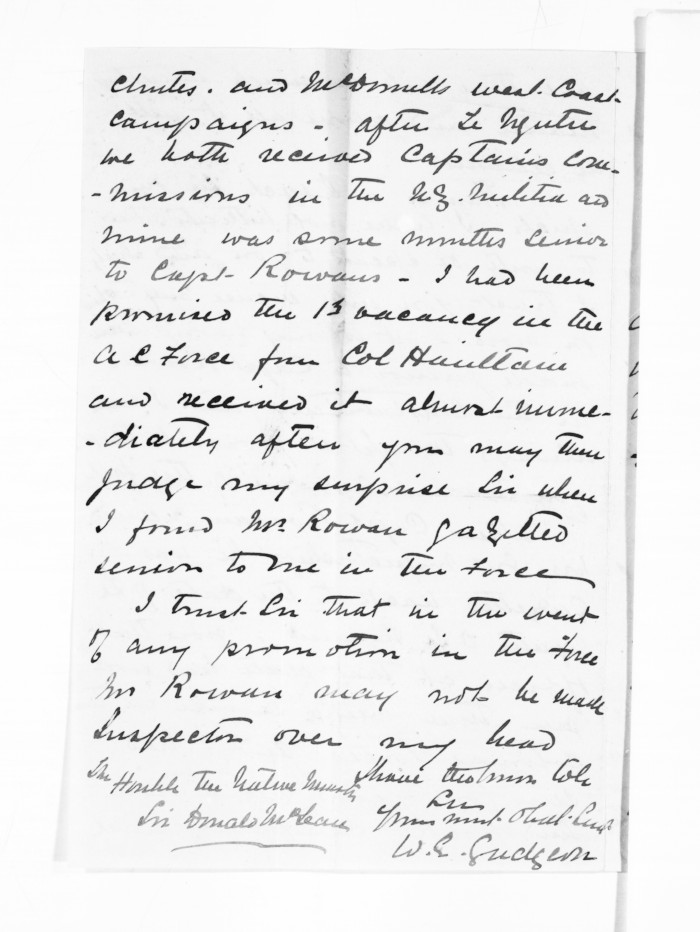 Chutes. and McDonnells west Coast
Campaigns - after Te Ngutu
we both received Captains Com-
-missions in the N.Z. Militia and
mine was some months senior
to Capt Rowans - I had been
promised the 1st vacancy in the
A C Force from Col Haultain
and received it almost imme-
-diately after you may then
judge my surprise Sir when
I found Mr Rowan gazetted
senior to me in the Force
I trust Sir that in the event
of any promotion in the Force
Mr Rowan may not be made
Inspector over my head
I have the honor to be
Sir
Your most Obed. Servt
W. E. Gudgeon
The Honble the Native Minister
Sir Donald McLean